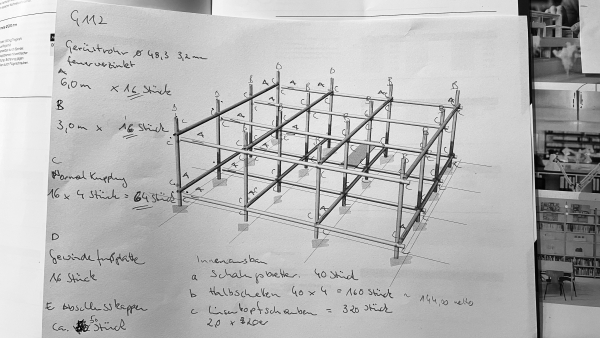 G112
Gerüstrohr ø 48,3 3,2mm
feuerverzinkt
A
6,0m x 16 Stück
B
3,0m x 16 Stück
C
Normalkupplung
16 x 4 Stück = 64 Stück
D
Gewindefußplatte
16 Stück
E Abschlusskappen
ca. 50 Stück
Innenausbau
a Schalungsbretter 40 Stück
b Halbschellen 40 x 4 = 160 Stück = 144,00 netto
c Linsenkopfschrauben = 320 Stück